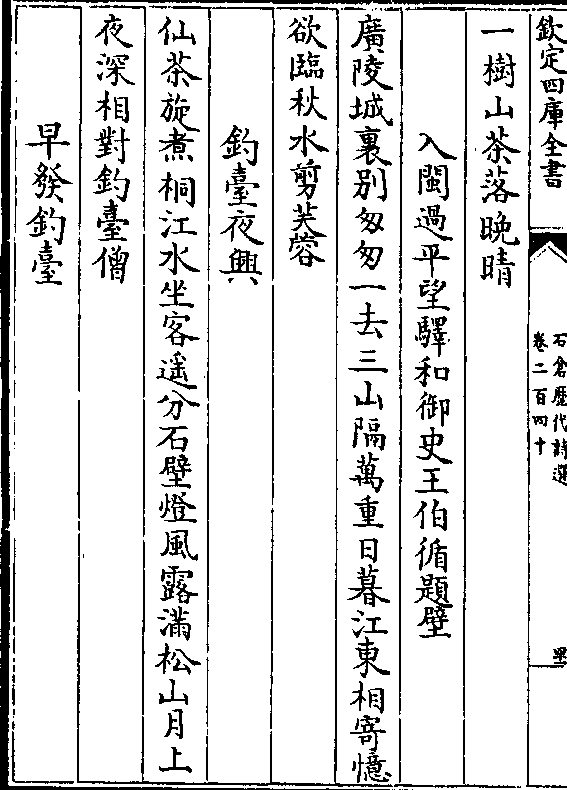 欽定四庫全書
石倉歷代詩選
卷二百四十
一樹山茶落晚晴
入閩過平望驛和御史王伯循題壁
廣陵城裏别匆匆一去三山隔萬重日暮江東相寄憶
欲臨秋水剪芙蓉
釣臺夜興
仙茶旋煮桐江水坐客遥分石壁燈風露滿松山月上
夜深相對釣臺僧
早發釣臺